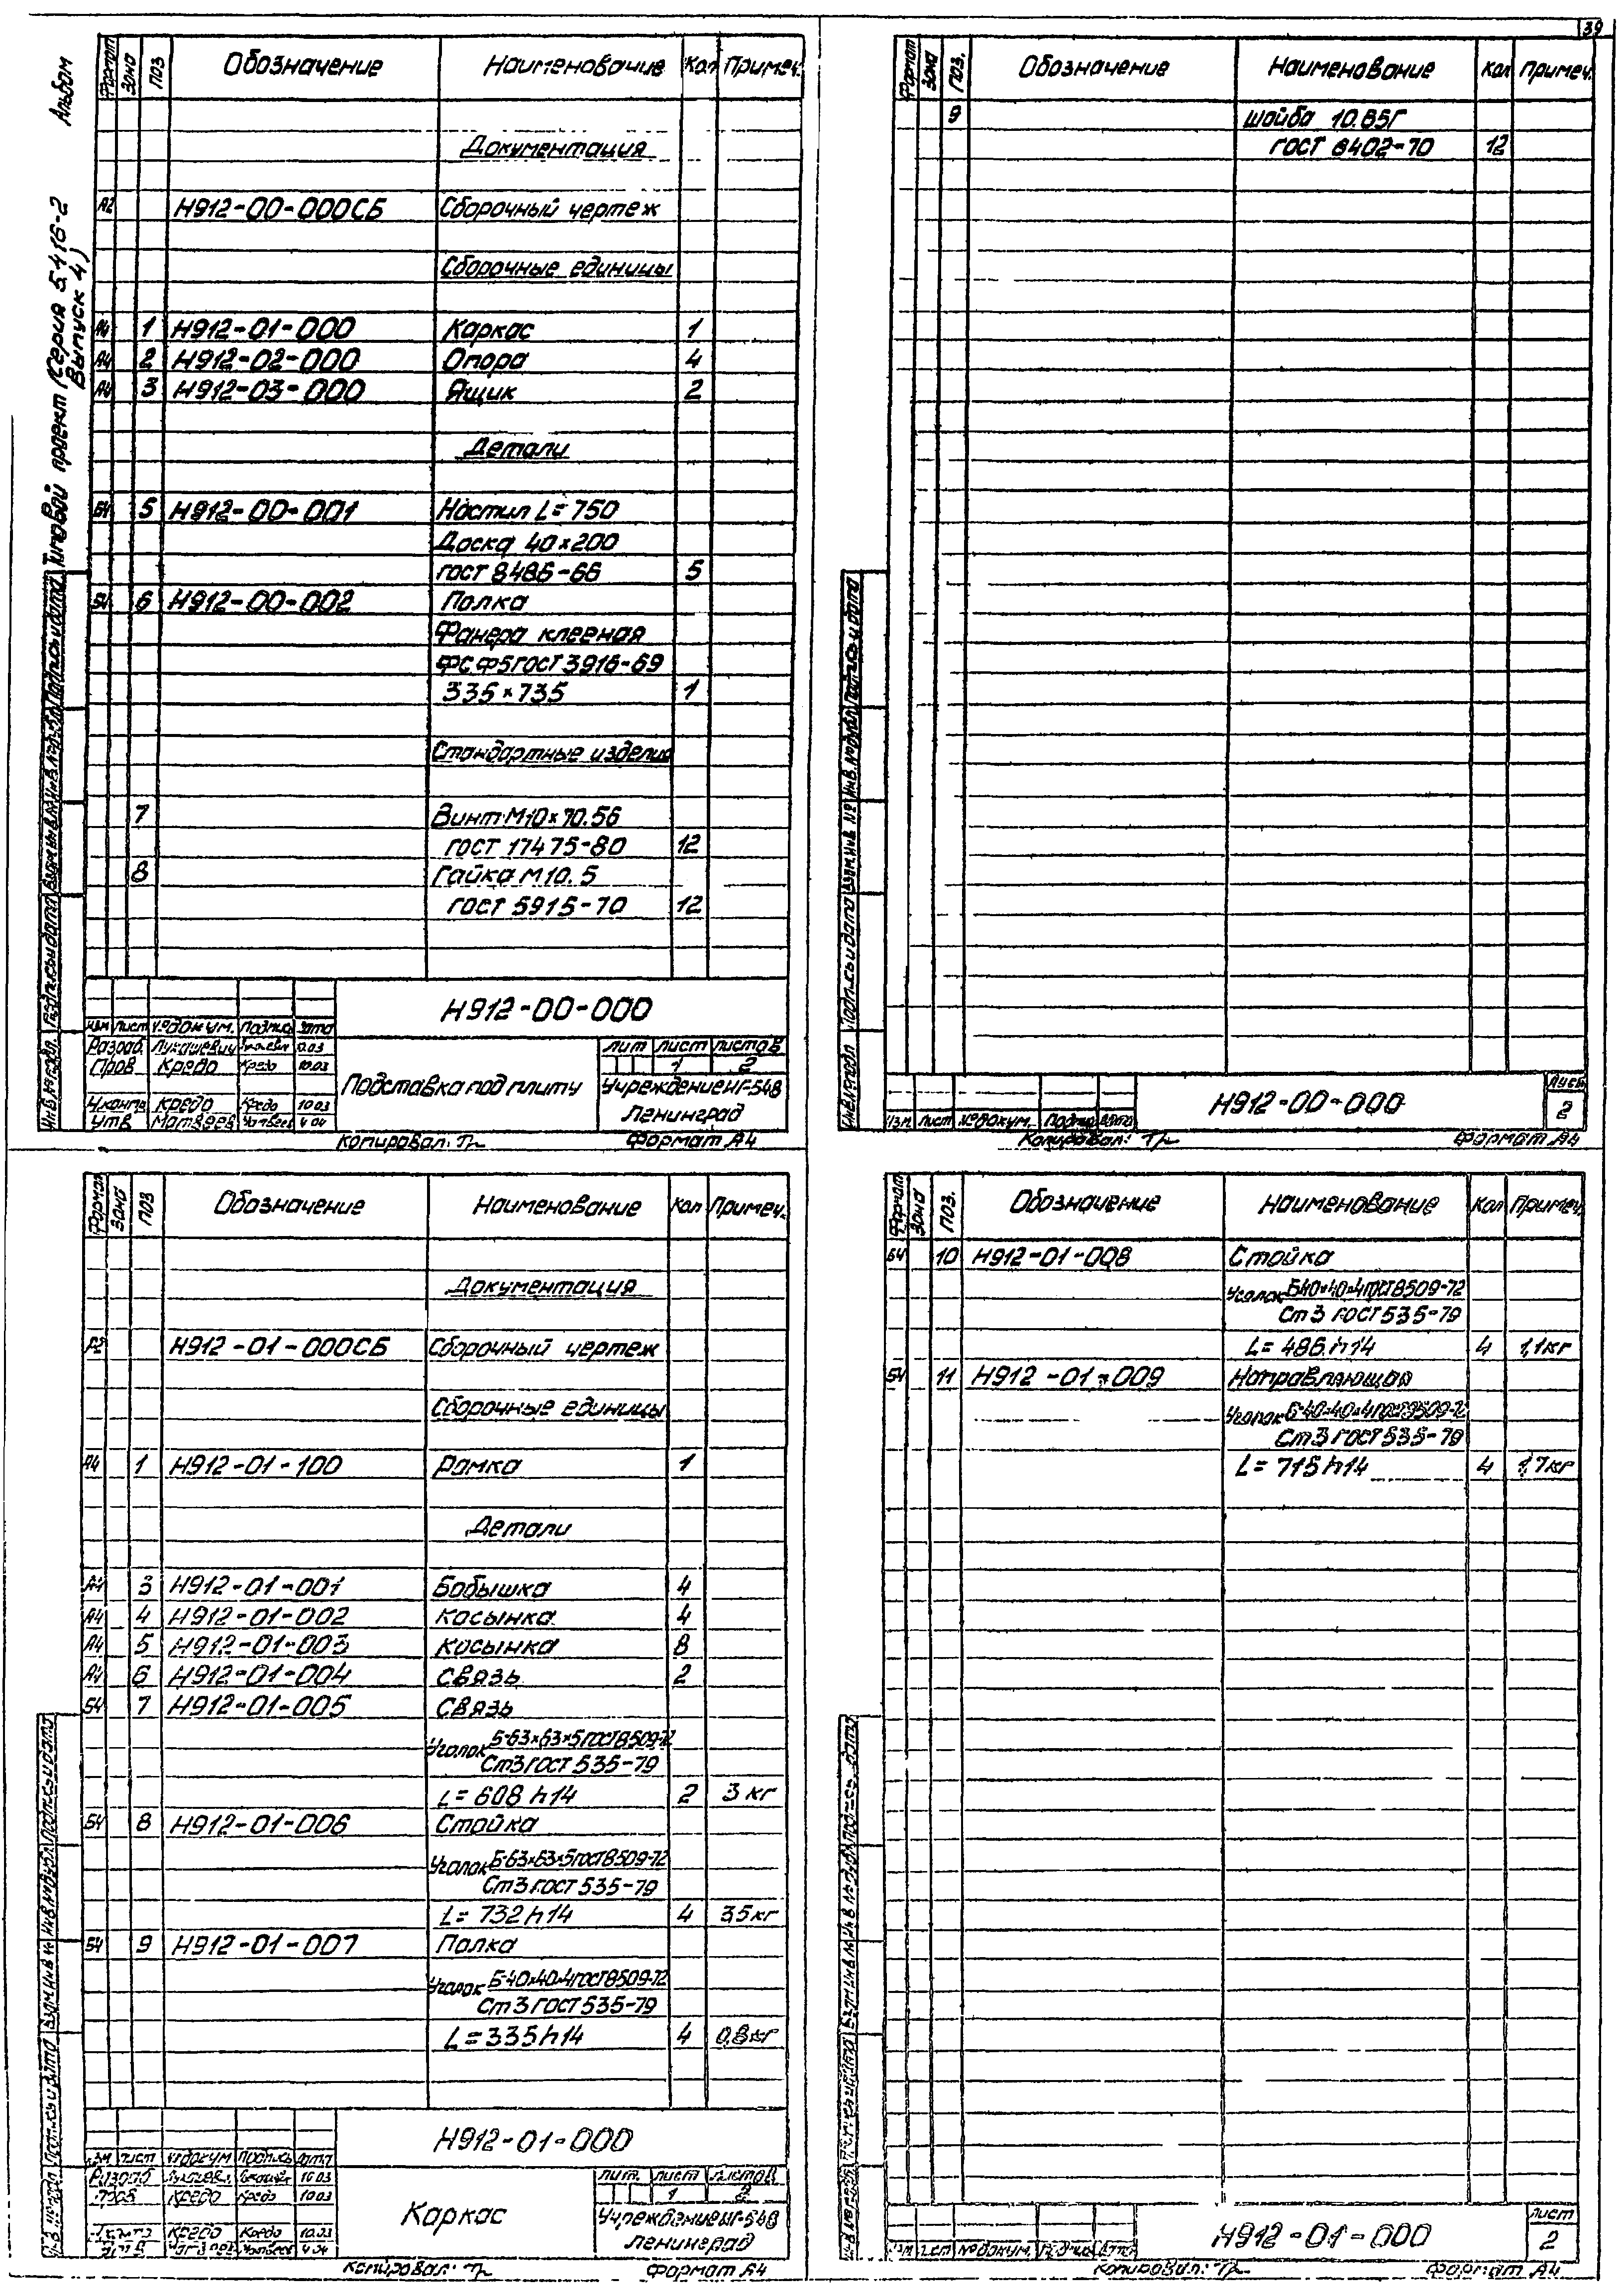 39
Альбом
Типовой проект (Серия 5.416-2
Выпуск 4)
Формат Зона Поз Обозначение Наименование Кол Примеч.
Документация
А2 Н912-00-000СБ Сборочный чертеж
Сборочные единицы
А4 1 Н912-01-000 Каркас 1
А4 2 Н912-02-000 Опора 4
А4 3 Н912-03-000 Ящик 2
Детали
Б4 5 Н912-00-001 Настил L=750
Доска 40×200
ГОСТ 8486-66 5
Б4 6 Н912-00-002 Полка
Фанера клееная
ФСФ5ГОСТ3916-69
335×735 1
Стандартные изделия
7 Винт М10×70.56
ГОСТ 17475-80 12
8 Гайка М10.5
ГОСТ 5915-70 12
Н912-00-000
Изм Лист № докум. Подпись Дата
Разраб. Лукашевич 10.03
Пров Кредо Кредо 10.03
Н.контр Кредо Кредо 10.03
Утв Матвеев Матвеев 4.04
Подставка под плиту
Лит Лист Листов
1 2
Учреждение
Ленинград
Копировал: Формат А4
Инв.№подл. Подпись и дата Взам.инв.№ Инв.№дубл Подпись и дата
Формат Зона Поз. Обозначение Наименование Кол Примеч.
9 Шайба 10.65Г
ГОСТ 6402-70 12
Изм. Лист № докум. Подпись Дата
Н912-00-000
Лист
2
Копировал: Формат А4
Инв.№подл Подпись и дата Взам.инв.№ Инв.№дубл Подпись и дата
Формат Зона Поз Обозначение Наименование Кол Примеч.
Документация
А2 Н912-01-000СБ Сборочный чертеж
Сборочные единицы
А4 1 Н912-01-100 Рамка 1
Детали
А4 3 Н912-01-001 Бобышка 4
А4 4 Н912-01-002 Косынка 4
А4 5 Н912-01-003 Косынка 8
А4 6 Н912-01-004 Связь 2
Б4 7 Н912-01-005 Связь
Уголок Б-63×63×5ГОСТ8509-72
Ст3ГОСТ535-79
L=608 h14 2 3 кг
Б4 8 Н912-01-006 Стойка
Уголок Б-63×63×5ГОСТ8509-72
Ст3ГОСТ535-79
L= 732 h14 4 3,5 кг
Б4 9 Н912-01-007 Полка
Уголок Б-40×40×4ГОСТ8509-72
Ст3ГОСТ535-79
L=335h14 4 0,8кг
Н912-01-000
Изм Лист № докум Подпись Дата
Разраб 10.03
Пров Кредо Кредо 10.03
Н.контр Кредо Кредо 10.03
Утв Матвеев Матвеев 4.04
Каркас
Лит. Лист Листов
1 2
Учреждение
Ленинград
Копировал: Формат А4
Инв.№подл Подпись и дата Взам.инв.№ Инв.№дубл Подпись и дата
Формат Зона Поз. Обозначение Наименование Кол Примеч.
Б4 10 Н912-01-008 Стойка
Уголок Б40×40×4ГОСТ8509-72
Ст3 ГОСТ535-79
L= 486 h14 4 1,1кг
Б4 11 Н912-01-009 Направляющая
Уголок Б-40×40×4ГОСТ8509-72
Ст3ГОСТ535-79
L= 715h14 4 1,7кг
Изм Лист № докум. Подпись Дата
Н912-01-000
Лист
2
Копировал: Формат А4
Инв.№подл Подпись и дата Взам.инв.№ Инв.№дубл Подпись и дата